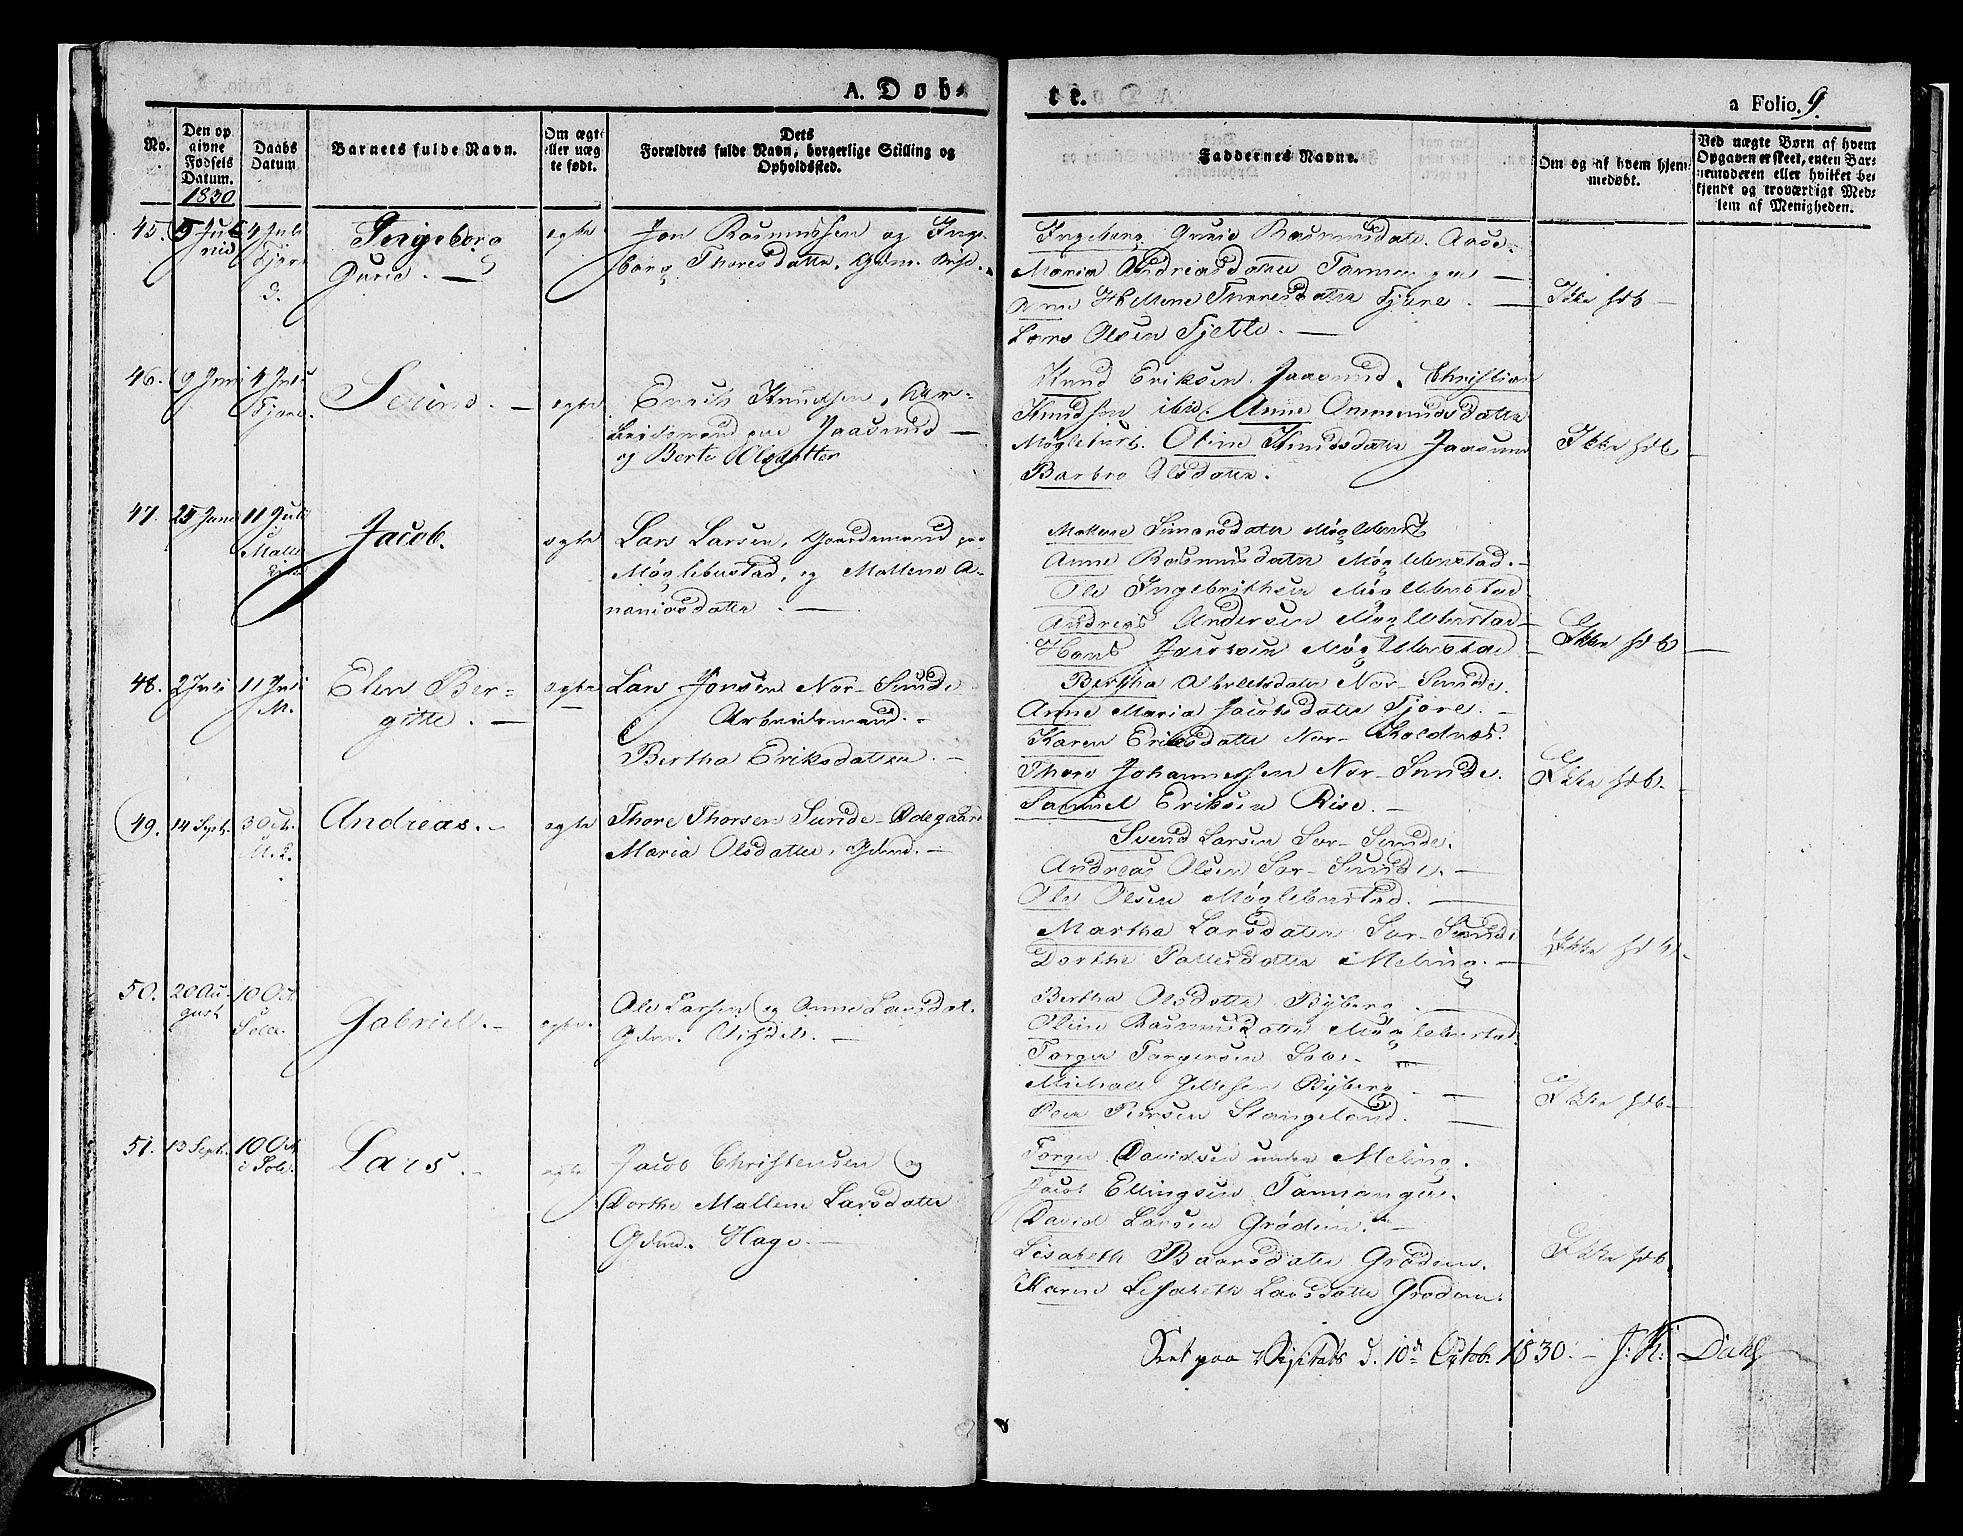 A. Døb-
te.
a Folio. 9.
No.
Den op
givne
Fødsels
Datum.
1830
Daabs
Datum
Barnets fulde Navn.
Om ægte
eller uæg
te født.
Dets
Forældres fulde Navn, borgerlige Stilling og
Opholdssted.
Faddernes Navne.
Om og af hvem hjem-
medøbt.
Ved uægte Børn af hvem
Opgaven er skeet, enten Bar-
nemoderen eller hvilket be-
kjendt og troværdigt Med-
lem af Menigheden.
45.
4 Juli
Ingeborg
Gurie.
egte
Jon Rasmussen og Inge-
borg Thoresdatter,
Ingeborg Gurie Rasmusdatr.
Maria Andreasdatter
Hellene Thoresdatter Tjore.
Lars Olsen Tjelte.
Ikke hdb
46.
9 Juni
4 Juli
Tjore.
egte
Erik Knudsen, Ar-
beidsmand paa Jaasund
og Berte Olsdatter
Knud Eriksen Jaasund. Christian
Knudsen ibid. Anne Ommundsdatter
Møglebust. Oline Knudsdatter Jaasund
Barbro Olsdatter.
Ikke hdb
47.
25 Juni
11 Juli
Jacob.
egte
Lars Larsen, Gaardmand paa
Møglebustad, og Mallene A-
naniasdatter
Mallene Simonsdatter Møglebust
Anne Rasmusdatter Møglebustad.
Ole Ingebrithsen Møglebustad
Andreas Andersen Møglebustad
Hans Jacobsen Møglebustad
Ikke hdb
48.
2 Juli
11 Juli
M.
Elen Ber-
gitte.
egte
Lars Jonsen Nor-Sunde
Arbeidsmand.
Bertha Eriksdatter.
Bertha Albretsdatter Nor-Sunde.
Anne Maria Jacobsdatter Tjore.
Karen Eriksdatter Nor-Koldnæs.
Thore Johannessen Nor-Sunde.
Samuel Eriksen Risa.
Ikke hdb.
49.
14 Sept.
3 Oct.
Andreas.
egte
Thore Thorsen Sunde-Ødegaard
Maria Olsdatter, Gdmd.
Svend Larsen Sør-Sunde.
Andreas Olsen Sør-Sunde.
Ole Olsen Møglebustad.
Martha Larsdatter Sør-Sunde
Dorthe Pallesdatter Meling.
Ikke hdb.
50.
20 Au-
gust
10 Oct.
Sole.
Gabriel.
egte.
Ole Larsen og Anne Larsdat.
Gdmd. Vigdel.
Bertha Olsdatter Byberg.
Oline Rasmusdatter Møglebustad.
Torger Torgersen Sole.
Michael Byberg
Peer Peersen Stangeland.
Ikke hdb
51.
13 Sept.
10 Oct.
i Sole.
Lars.
egte
Jacob Christensen og
Dorthe Mallene Larsdatter
Gdmd. Hage.
Torger Davidsen under Meling.
Jacob Ellingsen Tannanger.
David Larsen Grødem.
Lisabeth Baarsdatter Grødem.
Karen Lisabeth Larsdatter Grødem.
Ikke hdb.
Seet paa Visitats d. 10de Octob. 1830. J. K. Dahl